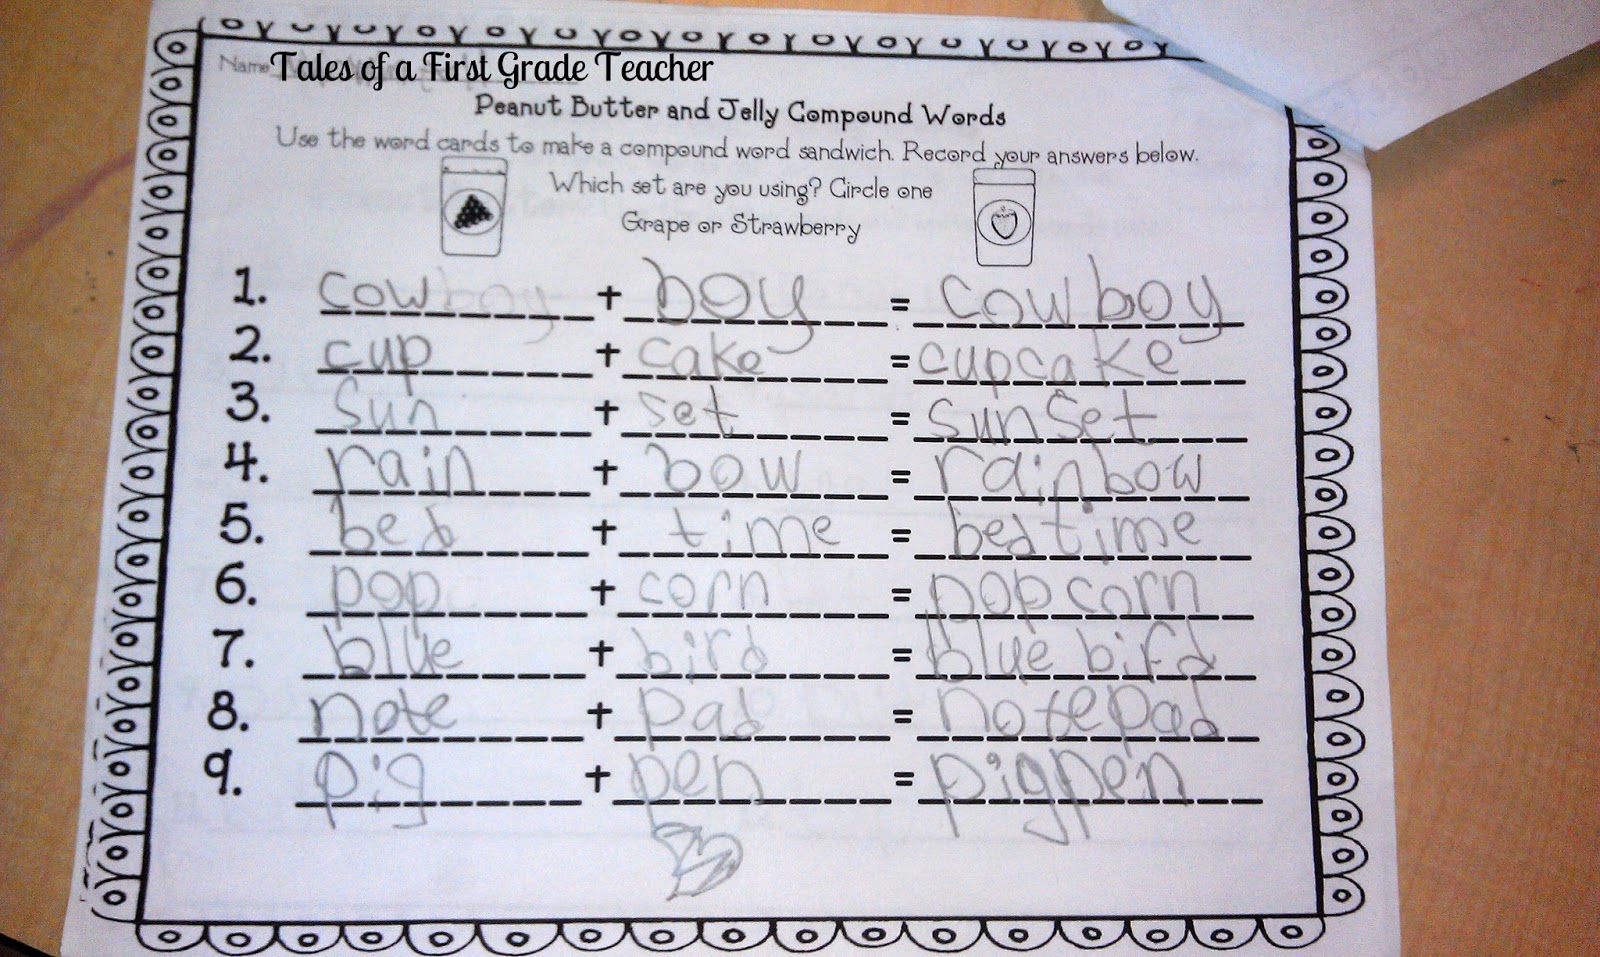 Name Tales of a First Grade Teacher
Peanut Butter and Jelly Compound Words
Use the word cards to make a compound word sandwich. Record your answers below.
Which set are you using? Circle one
Grape or Strawberry
1. cowboy + boy = cowboy
2. cup + cake = cupcake
3. sun + set = sunset
4. rain + bow = rainbow
5. bed + time = bedtime
6. pop + corn = popcorn
7. blue + bird = blue bird
8. note + pad = notepad
9. pig + pen = pigpen